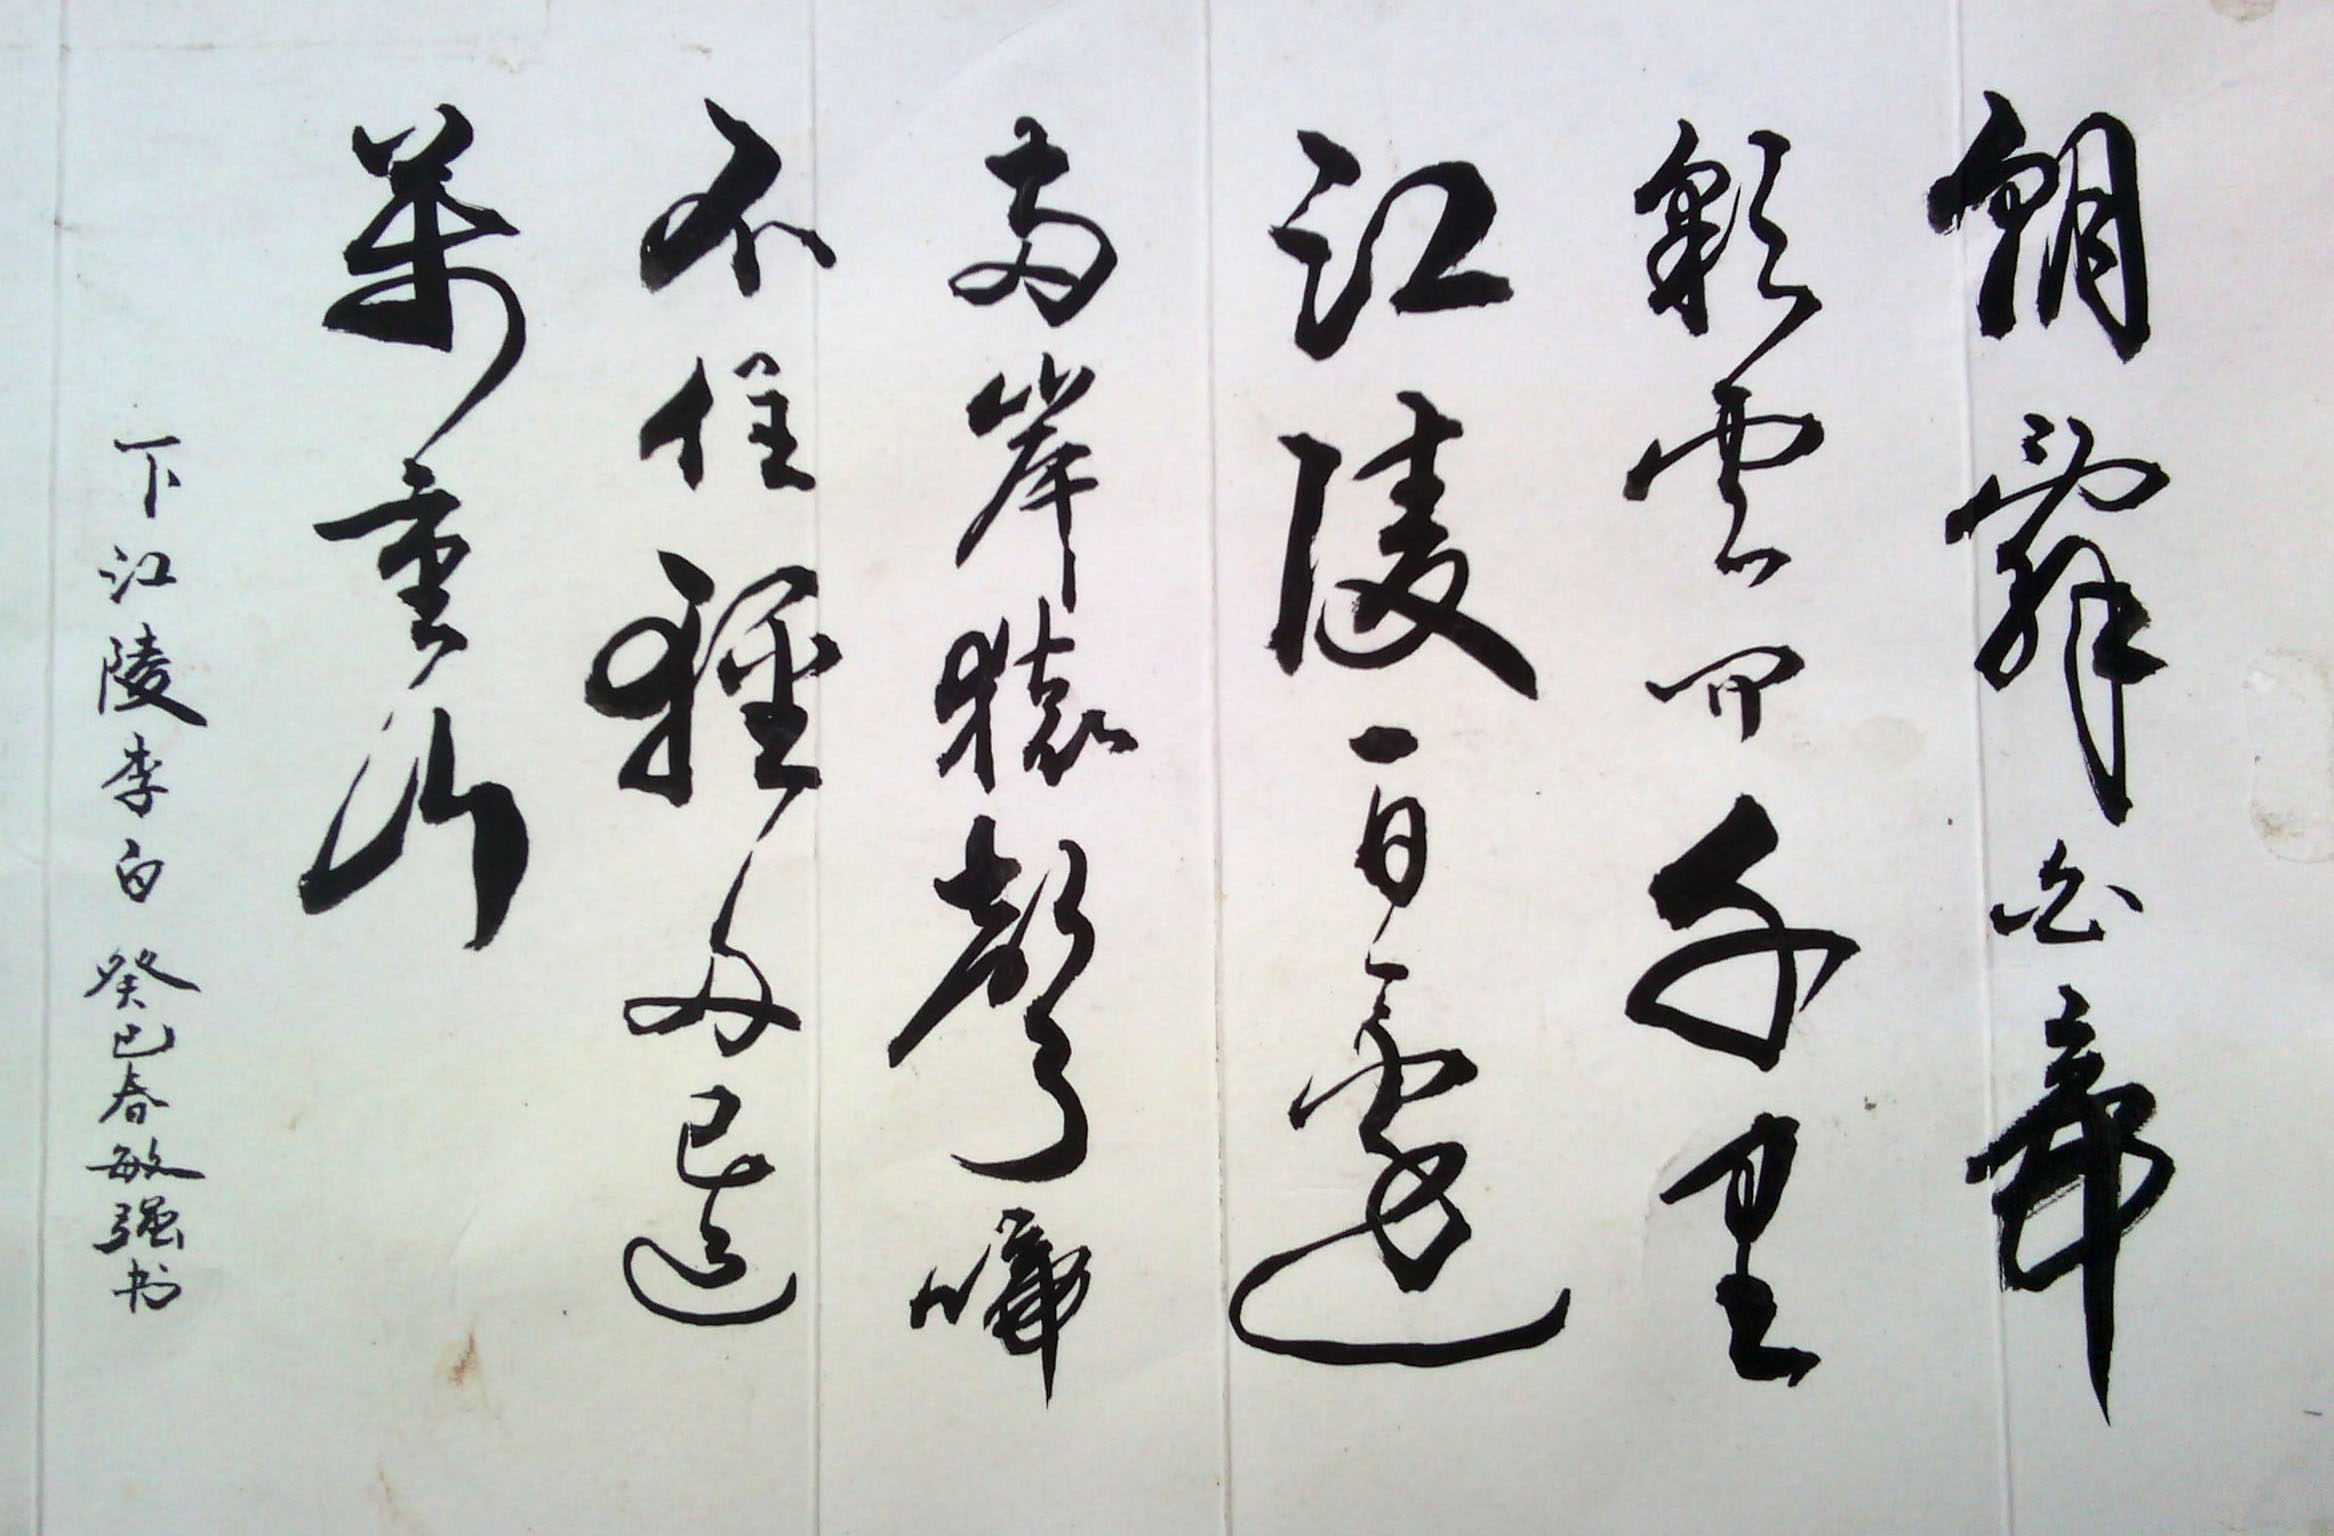 朝辭白帝
彩雲間千里
江陵一日還
兩岸猿聲啼
不住輕舟已過
萬重山
下江陵李白 癸巳春敏强书